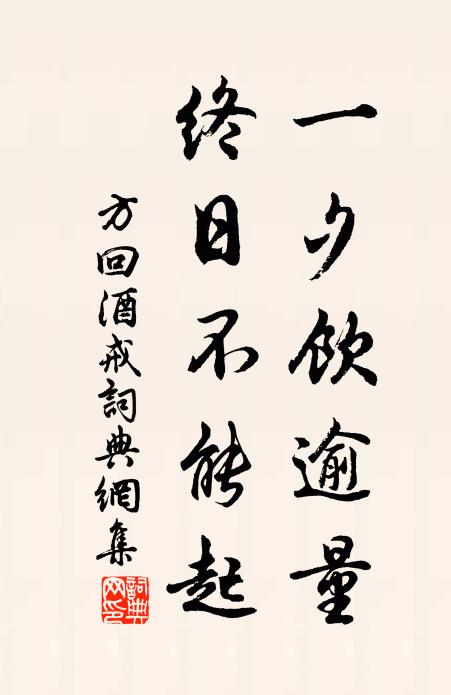 一夕飲逾量
終日不能起
方回酒戒詞典網集
詞典網印